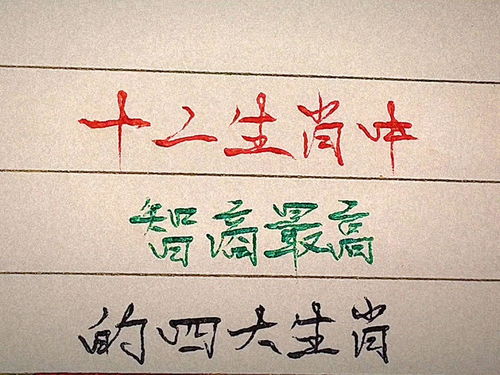 十二生肖中
智商最高
的四大生肖